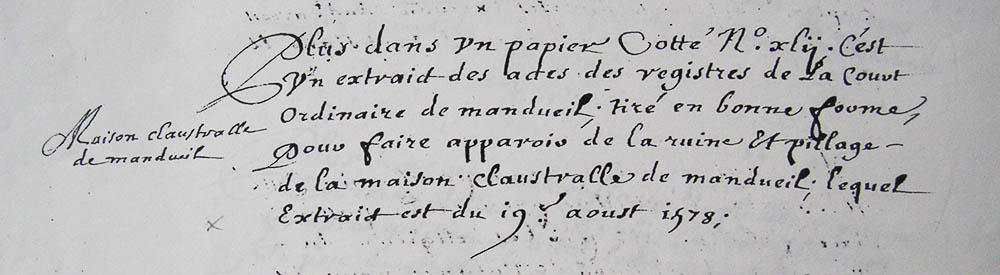 Plus dans un papier Cotté No. xlij. C'est
Un extraict des actes des registres de La Court
Ordinaire de mandueil, tiré en bonne forme,
Maison claustralle
de mandueil
Pour faire apparoir de la ruine Et pillage -
de la maison claustralle de mandueil, lequel
Extraict est du 19e aoust 1578;